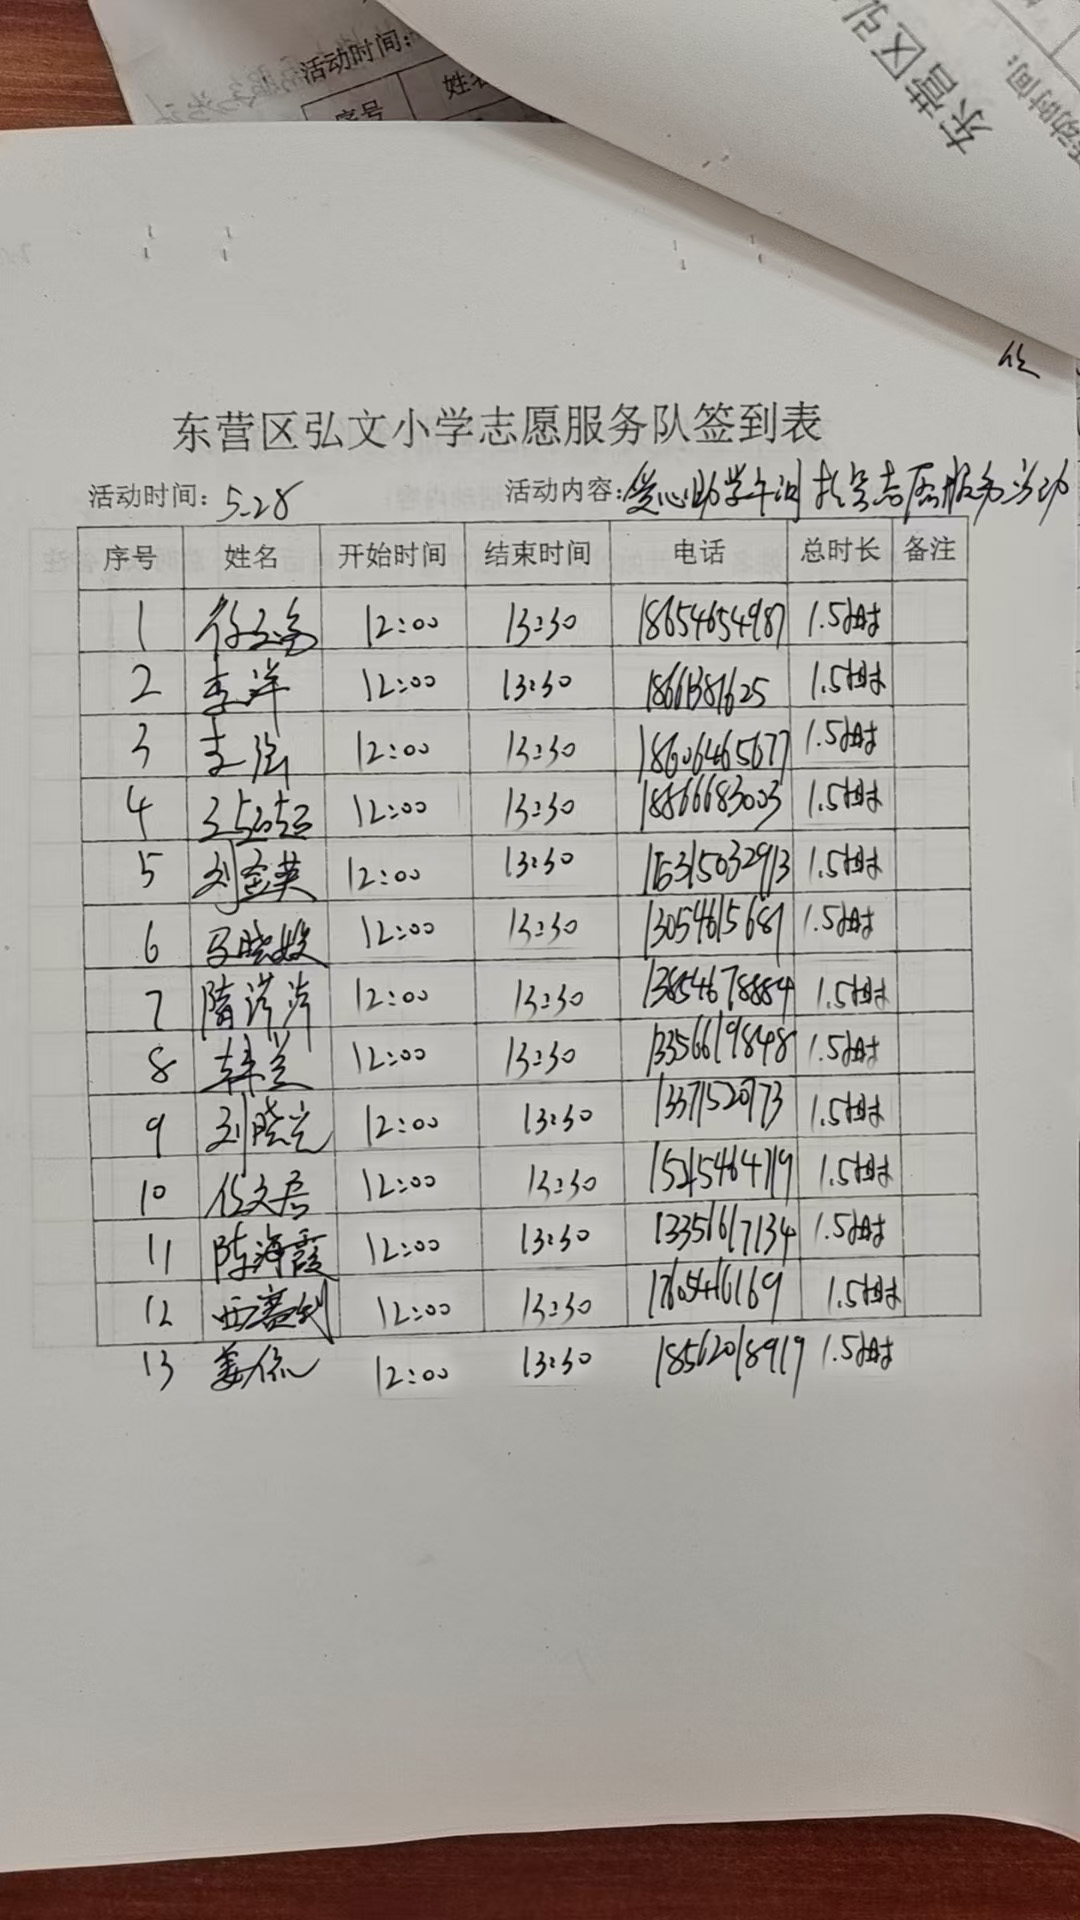 活动时间:
序号 姓名
东营区弘
活动时间:
东营区弘文小学志愿服务队签到表
活动时间: 5.28 活动内容: 爱心助学午间 志愿服务活动
序号 姓名 开始时间 结束时间 电话 总时长 备注
1 12:00 13:30 18654654987 1.5小时
2 李洋 12:00 13:30 1.5小时
3 12:00 13:30 18606465677 1.5小时
4 12:00 13:30 18866683003 1.5小时
5 刘金英 12:00 13:30 15315032913 1.5小时
6 马晓姣 12:00 13:30 13054615681 1.5小时
7 隋萍萍 12:00 13:30 13854678884 1.5小时
8 韩兰 12:00 13:30 13356619848 1.5小时
9 刘晓光 12:00 13:30 1.5小时
10 任文居 12:00 13:30 15215464719 1.5小时
11 陈海霞 12:00 13:30 13351617134 1.5小时
12 12:00 13:30 1.5小时
13 姜依 12:00 13:30 18562018919 1.5小时